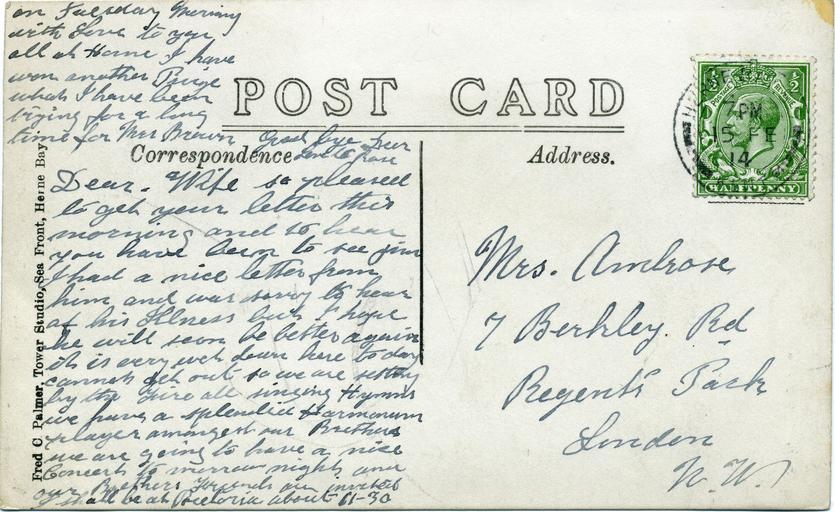 POST CARD
Correspondence
Address.
Dear. Wife so pleased
to get your letter this
morning and to hear
you have been to see jim
I had a nice letter from
him and was sorry to hear
of his Illness but I hope
he will soon be better again
it is very wet down here to day
cannot get out so we are setting
by the Fire all singing Hymns
we have a splendid Harmonium
player amongst our Brothers
we are going to have a nice
Concert to morrow night and
our Brothers Friends are invited
I shall be at Victoria about 11-30
on Tuesday Morning
with Love to you
all at Home I have
won another Prize
what I have been
trying for a long
time for Mrs Brown Good bye Dear
Mrs. Ambrose
7 Berkley. Rd
Regents Park
London
N.W.
HERNE BAY
7 PM
15 FE
14
POSTAGE REVENUE
1/2
HALFPENNY
Fred C. Palmer, Tower Studio, Sea Front, Herne Bay.